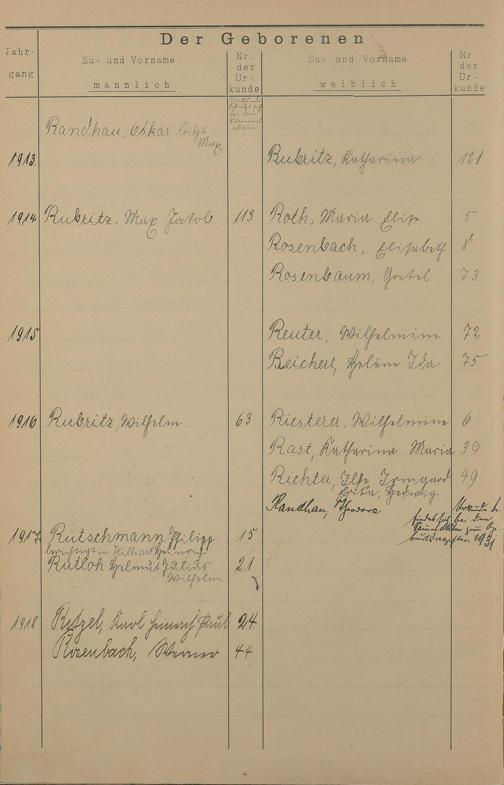 Der Geborenen
Jahrgang
Zu- und Vorname
männlich
Nr. der Urkunde
Zu- und Vorname
weiblich
Nr. der Urkunde
Randhau, Oskar Fritz
Max
1913 Rubritz, Katharina 121
1914 Rubritz, Max Jakob 113 Roth, Maria Elise 5
Rosenbach, Elisabeth 8
Rosenbaum, Gretel 73
1915 Reuter, Wilhelmine 72
Beichert, Helene Ida 75
1916 Rubritz, Wilhelm 63 Riesterer, Wilhelmine 6
Rast, Katharina Maria 39
Richter, Ilse Irmgard 49
Erika, Hedwig
Randhau, Theodora
1917 Rutschmann Philipp 15
berichtigt in Heinrich
Rutloh Helmut Julius 21
Wilhelm
1918 Retzel, Karl Heinrich Paul 24
Rosenbach, Werner 44